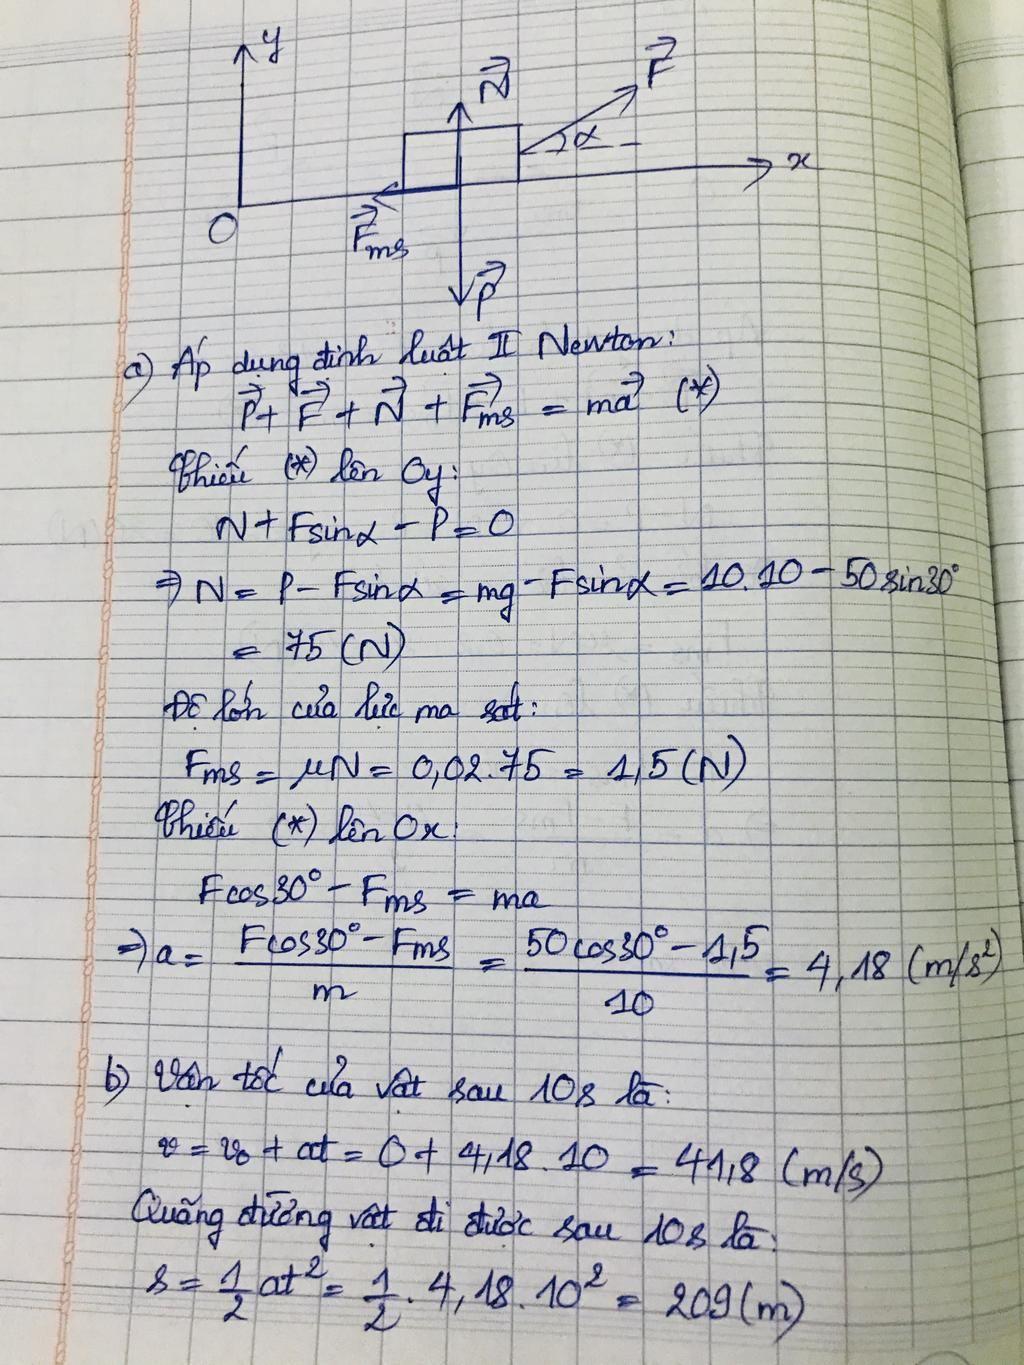 y
N⃗
F⃗
α
x
O
F⃗ms
P⃗
a) Áp dụng định luật II Newton:
P⃗ + F⃗ + N⃗ + F⃗ms = ma⃗ (*)
Chiếu (*) lên Oy:
N + Fsinα - P = 0
⇒ N = P - Fsinα = mg - Fsinα = 10.10 - 50sin30°
= 75 (N)
Độ lớn của lực ma sát:
Fms = μN = 0,02.75 = 1,5 (N)
Chiếu (*) lên Ox:
Fcos30° - Fms = ma
⇒ a = (Fcos30° - Fms)/m = (50cos30° - 1,5)/10 = 4,18 (m/s²)
b) Vận tốc của vật sau 10s là:
v = v₀ + at = 0 + 4,18.10 = 41,8 (m/s)
Quãng đường vật đi được sau 10s là:
s = 1/2 at² = 1/2 . 4,18.10² = 209 (m)